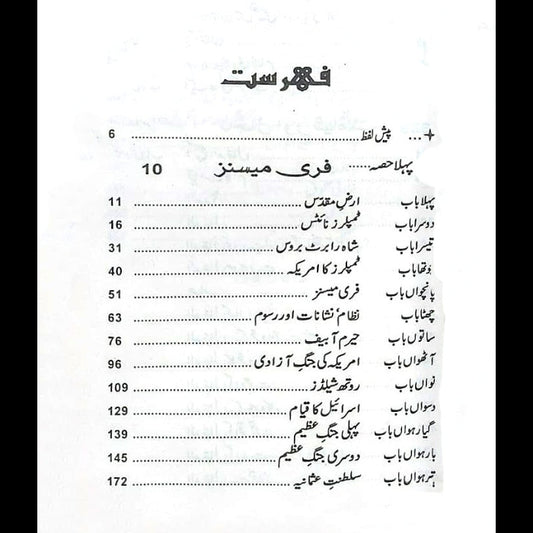 فہرست
+... پیش لفظ ........ 6
پہلا حصہ...... فری میسنز 10
پہلا باب ارضِ مقدس ........ 11
دوسرا باب ٹمپلرز نائٹس ........ 16
تیسرا باب شاہ رابرٹ بروس ........ 31
چوتھا باب ٹمپلرز کا امریکہ ........ 40
پانچواں باب فری میسنز ........ 51
چھٹا باب نظام نشانات اور رسوم ........ 63
ساتوں باب حیرم آبیف ........ 76
آٹھواں باب امریکہ کی جنگِ آزادی ........ 96
نواں باب روتھ شیلڈز ........ 109
دسواں باب اسرائیل کا قیام ........ 129
گیارہواں باب پہلی جنگِ عظیم ........ 139
بارہواں باب دوسری جنگِ عظیم ........ 145
تیرہواں باب سلطنتِ عثمانیہ ........ 172